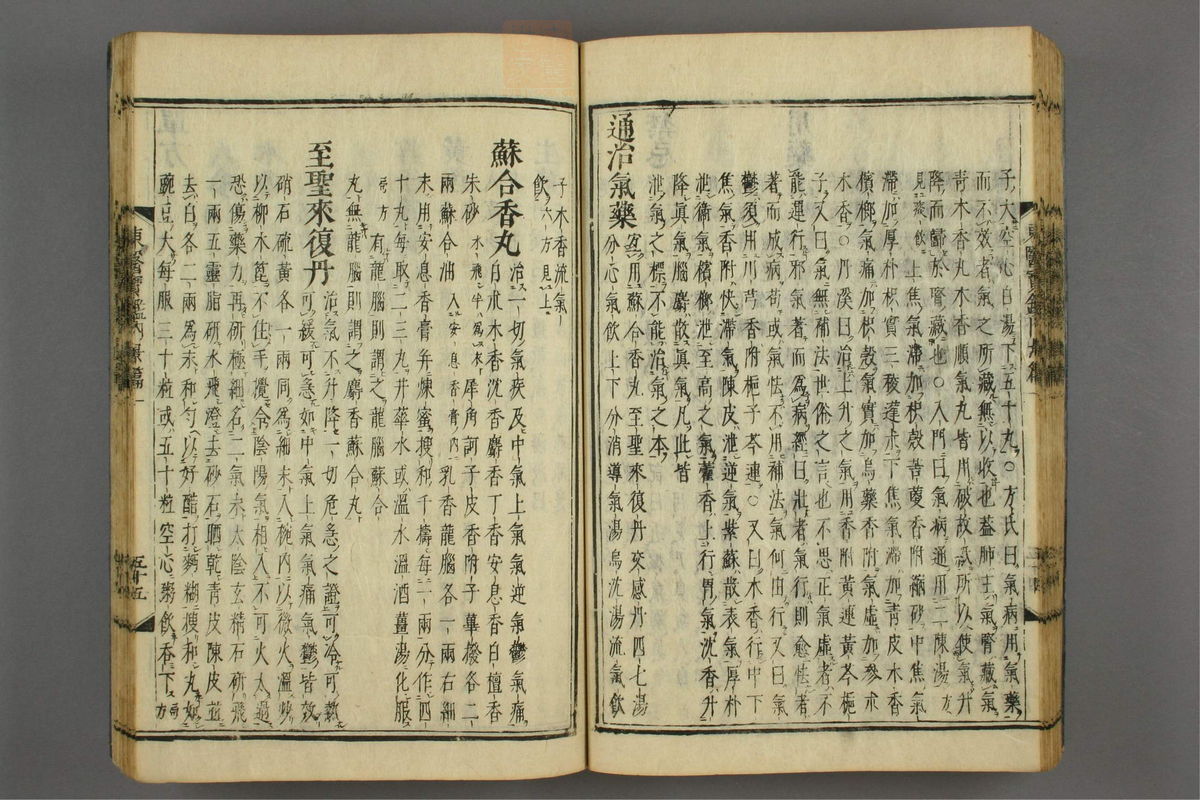 子大空心白湯下五十丸○方氏曰氣病用氣藥
而不效者氣之所藏無以收也蓋肺主氣腎藏氣
青木香丸木香順氣丸皆用破故紙所以使氣升
降而歸於腎藏也○入門曰氣病通用二陳湯方
見痰飲上焦氣滯加枳殼香附縮砂中焦氣
滯加厚朴枳實三稜蓬朮下焦氣滯加青皮木香
檳榔氣痛加枳殼氣實加烏藥香附氣虛加參朮
木香○丹溪曰治上升之氣用香附黃連黃芩梔
子又曰氣無補法世俗之言也不思正氣虛者不
能運行邪氣著而為病經曰壯者氣行則愈怯者
著而成病苟或氣怯不用補法氣何由行又曰氣
鬱須用川芎香附梔子芩連○又曰木香行中下
焦氣香附快滯氣陳皮泄逆氣紫蘇散表氣厚朴
泄衛氣檳榔泄至高之氣藿香上行胃氣沈香升
降眞氣腦麝散眞氣凡此皆
泄氣之標不能治氣之本
通治氣藥
宜用蘇合香丸至聖來復丹交感丹四七湯
分心氣飲上下分消導氣湯烏沈湯流氣飲
子木香流氣
飲六方見上
蘇合香丸
治一切氣疾及中氣上氣氣逆氣鬱氣痛
白朮木香沈香麝香丁香安息香白檀香
朱砂水飛半為衣犀角訶子皮香附子蓽撥各二
兩蘇合油入安息香膏內乳香龍腦各一兩右細
末用安息香膏幷煉蜜搜和千擣每一兩分作四
十丸每取二三丸井華水或溫水溫酒薑湯化服
局方有龍腦則謂之龍腦蘇合
丸無龍腦則謂之麝香蘇合丸
至聖來復丹
治氣不升降一切危急之證可冷可熱
可緩可急如中氣上氣氣痛氣鬱皆效
硝石硫黃各一兩同為細末入椀內以微火溫炒
以柳木篦不住手攪令陰陽氣相入不可火太過
恐傷藥力再研極細名二氣末太陰玄精石研飛
一兩五靈脂研水飛澄去砂石晒乾青皮陳皮並
去白各二兩為末和勻以好醋打麪糊搜和丸如
豌豆大每服三十粒或五十粒空心粥飲吞下局方
東醫寶鑑內景篇一
五十五